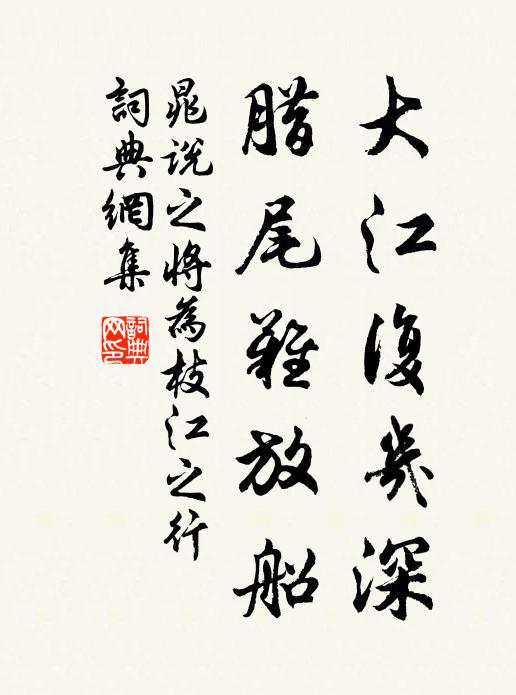 大江復幾深
腊尾難放船
晁説之將為枝江之行
詞典網集
詞典网印